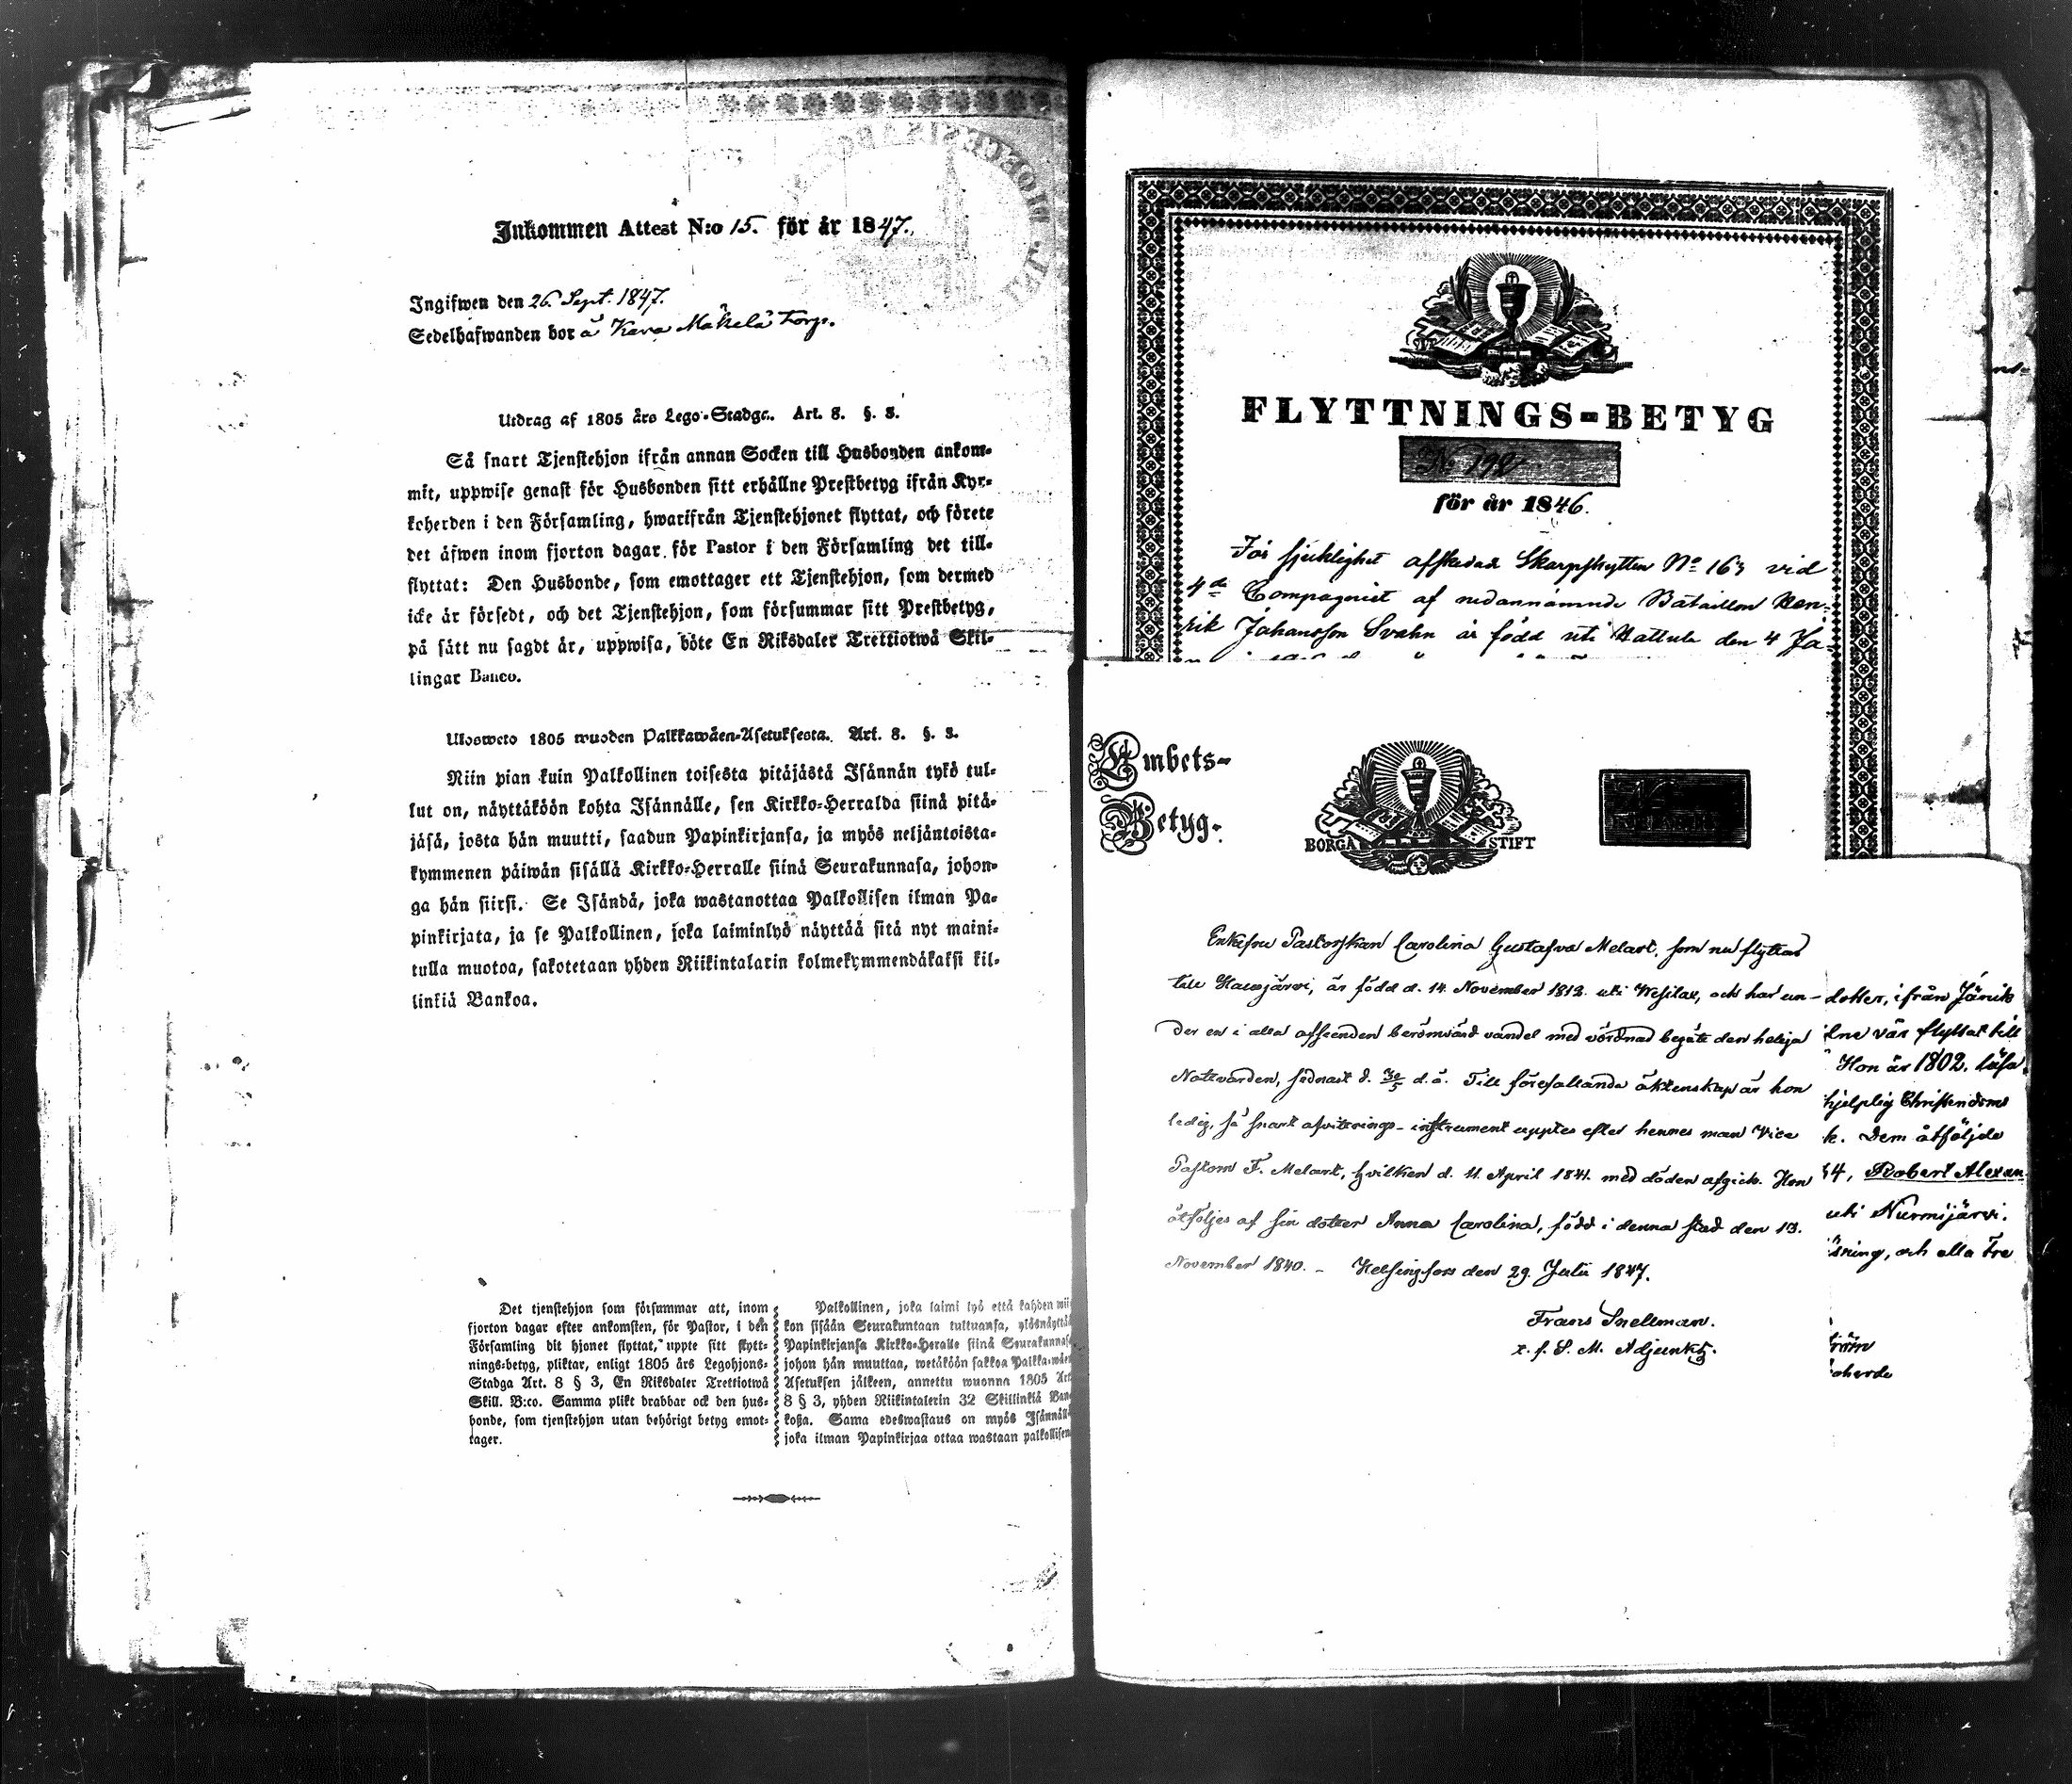 Inkommen Attest N:o 15. för år 1847.
Ingifwen den 26. Sept. 1847.
Sedelhafwanden bor å Kara Mäkelä torp.
Utdrag af 1805 års Lego-Stadga. Art. 8. §. 3.
Så snart Tjenstehjon ifrån annan Socken till Husbonden ankom-
mit, uppwise genast för Husbonden sitt erhållne Prestbetyg ifrån Kyr-
koherden i den Församling, hwarifrån Tjenstehjonet flyttat, och förete
det äfwen inom fjorton dagar för Pastor i den Församling det till-
flyttat: Den Husbonde, som emottager ett Tjenstehjon, som dermed
icke är försedt, och det Tjenstehjon, som försummar sitt Prestbetyg,
på sätt nu sagdt är, uppwisa, böte En Riksdaler Trettiotwå Skil-
lingar Banco.
Ulosweto 1805 wuoden Palkkawäen-Asetuksesta. Art. 8. §. 3.
Niin pian kuin Palkollinen toisesta pitäjästä Isännän tykö tul-
lut on, näyttäköön kohta Isännälle, sen Kirkko-Herralda siinä pitä-
jäsä, josta hän muutti, saadun Papinkirjansa, ja myös neljäntoista-
kymmenen päiwän sisällä Kirkko-Herralle siinä Seurakunnasa, johon-
ga hän siirsi. Se Isändä, joka wastanottaa Palkollisen ilman Pa-
pinkirjata, ja se Palkollinen, joka laiminlyö näyttää sitä nyt maini-
tulla muotoa, sakotetaan yhden Riikintalarin kolmekymmendäkaksi kil-
linkiä Bankoa.
Det tjenstehjon som försummar att, inom
fjorton dagar efter ankomsten, för Pastor, i den
Församling dit hjonet flyttat, uppte sitt flytt-
nings-betyg, pliktar, enligt 1805 års Legohjons-
Stadga Art. 8 § 3, En Riksdaler Trettiotwå
Skill. B:co. Samma plikt drabbar ock den hus-
bonde, som tjenstehjon utan behörigt betyg emot-
tager.
Palkollinen, joka laimi lyö että kahden wii-
kon sisään Seurakuntaan tultuansa, ylösnäyttää
Papinkirjansa Kirkko-Heralle siinä Seurakunnasa
johon hän muuttaa, wetäköön sakkoa Palkka-wäen
Asetuksen jälkeen, annettu wuonna 1805 Art
8 § 3, yhden Riikintalerin 32 Skillinkiä Ban
koßa. Sama edeswastaus on myös Isännällä
joka ilman Papinkirjaa ottaa wastaan palkollisen
FLYTTNINGS-BETYG
No 192
för år 1846.
För sjuklighet afskedade Skarpskytten No 163 vid
4de Compagniet af nedannämnde Bataillon Hen-
rik Johansson Svahn är född uti Hattula den 4 Ja-
Embets-
Betyg.
BORGÅ STIFT
Enkefru Pastorskan Carolina Gustafva Melart, som nu flyttar
till Hausjärvi, är född d. 14. November 1812. uti Wesilax, och har un-
der en i alla afseenden berömvärd vandel med vördnad begått den heliga
Nattvarden, sednast d. 30/5 d.å. Till förefallande äktenskap är hon
ledig, så snart afvittrings-instrument upptes efter hennes man Vice
Pastorn F. Melart, hvilken d. 11. April 1841. med döden afgick. Hon
åtföljes af sin dotter Anna Carolina, född i denna stad den 13.
November 1840. - Helsingfors den 29. Juli 1847.
Frans Snellman.
t. f. S. M. Adjunkt.
dotter, ifrån Jänik
lne vår flyttat till
Hon är 1802. läsa
hjelplig Christendoms
k. Dem åtföljde
44, Robert Alexan
uti Nurmijärvi.
isning, och alla tre
ström
oherde